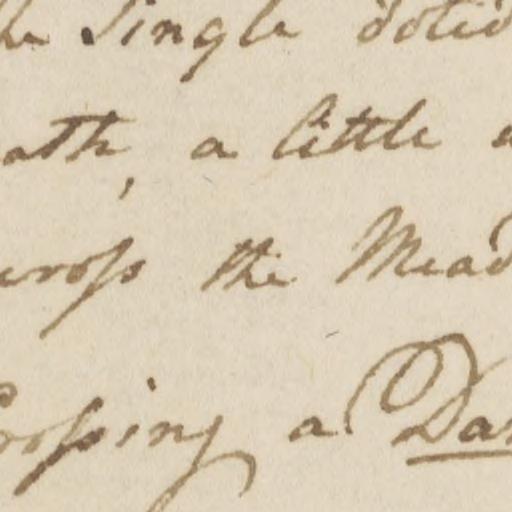 the Single doted
ath, a little a
cross the Mead
Crossing a Dam